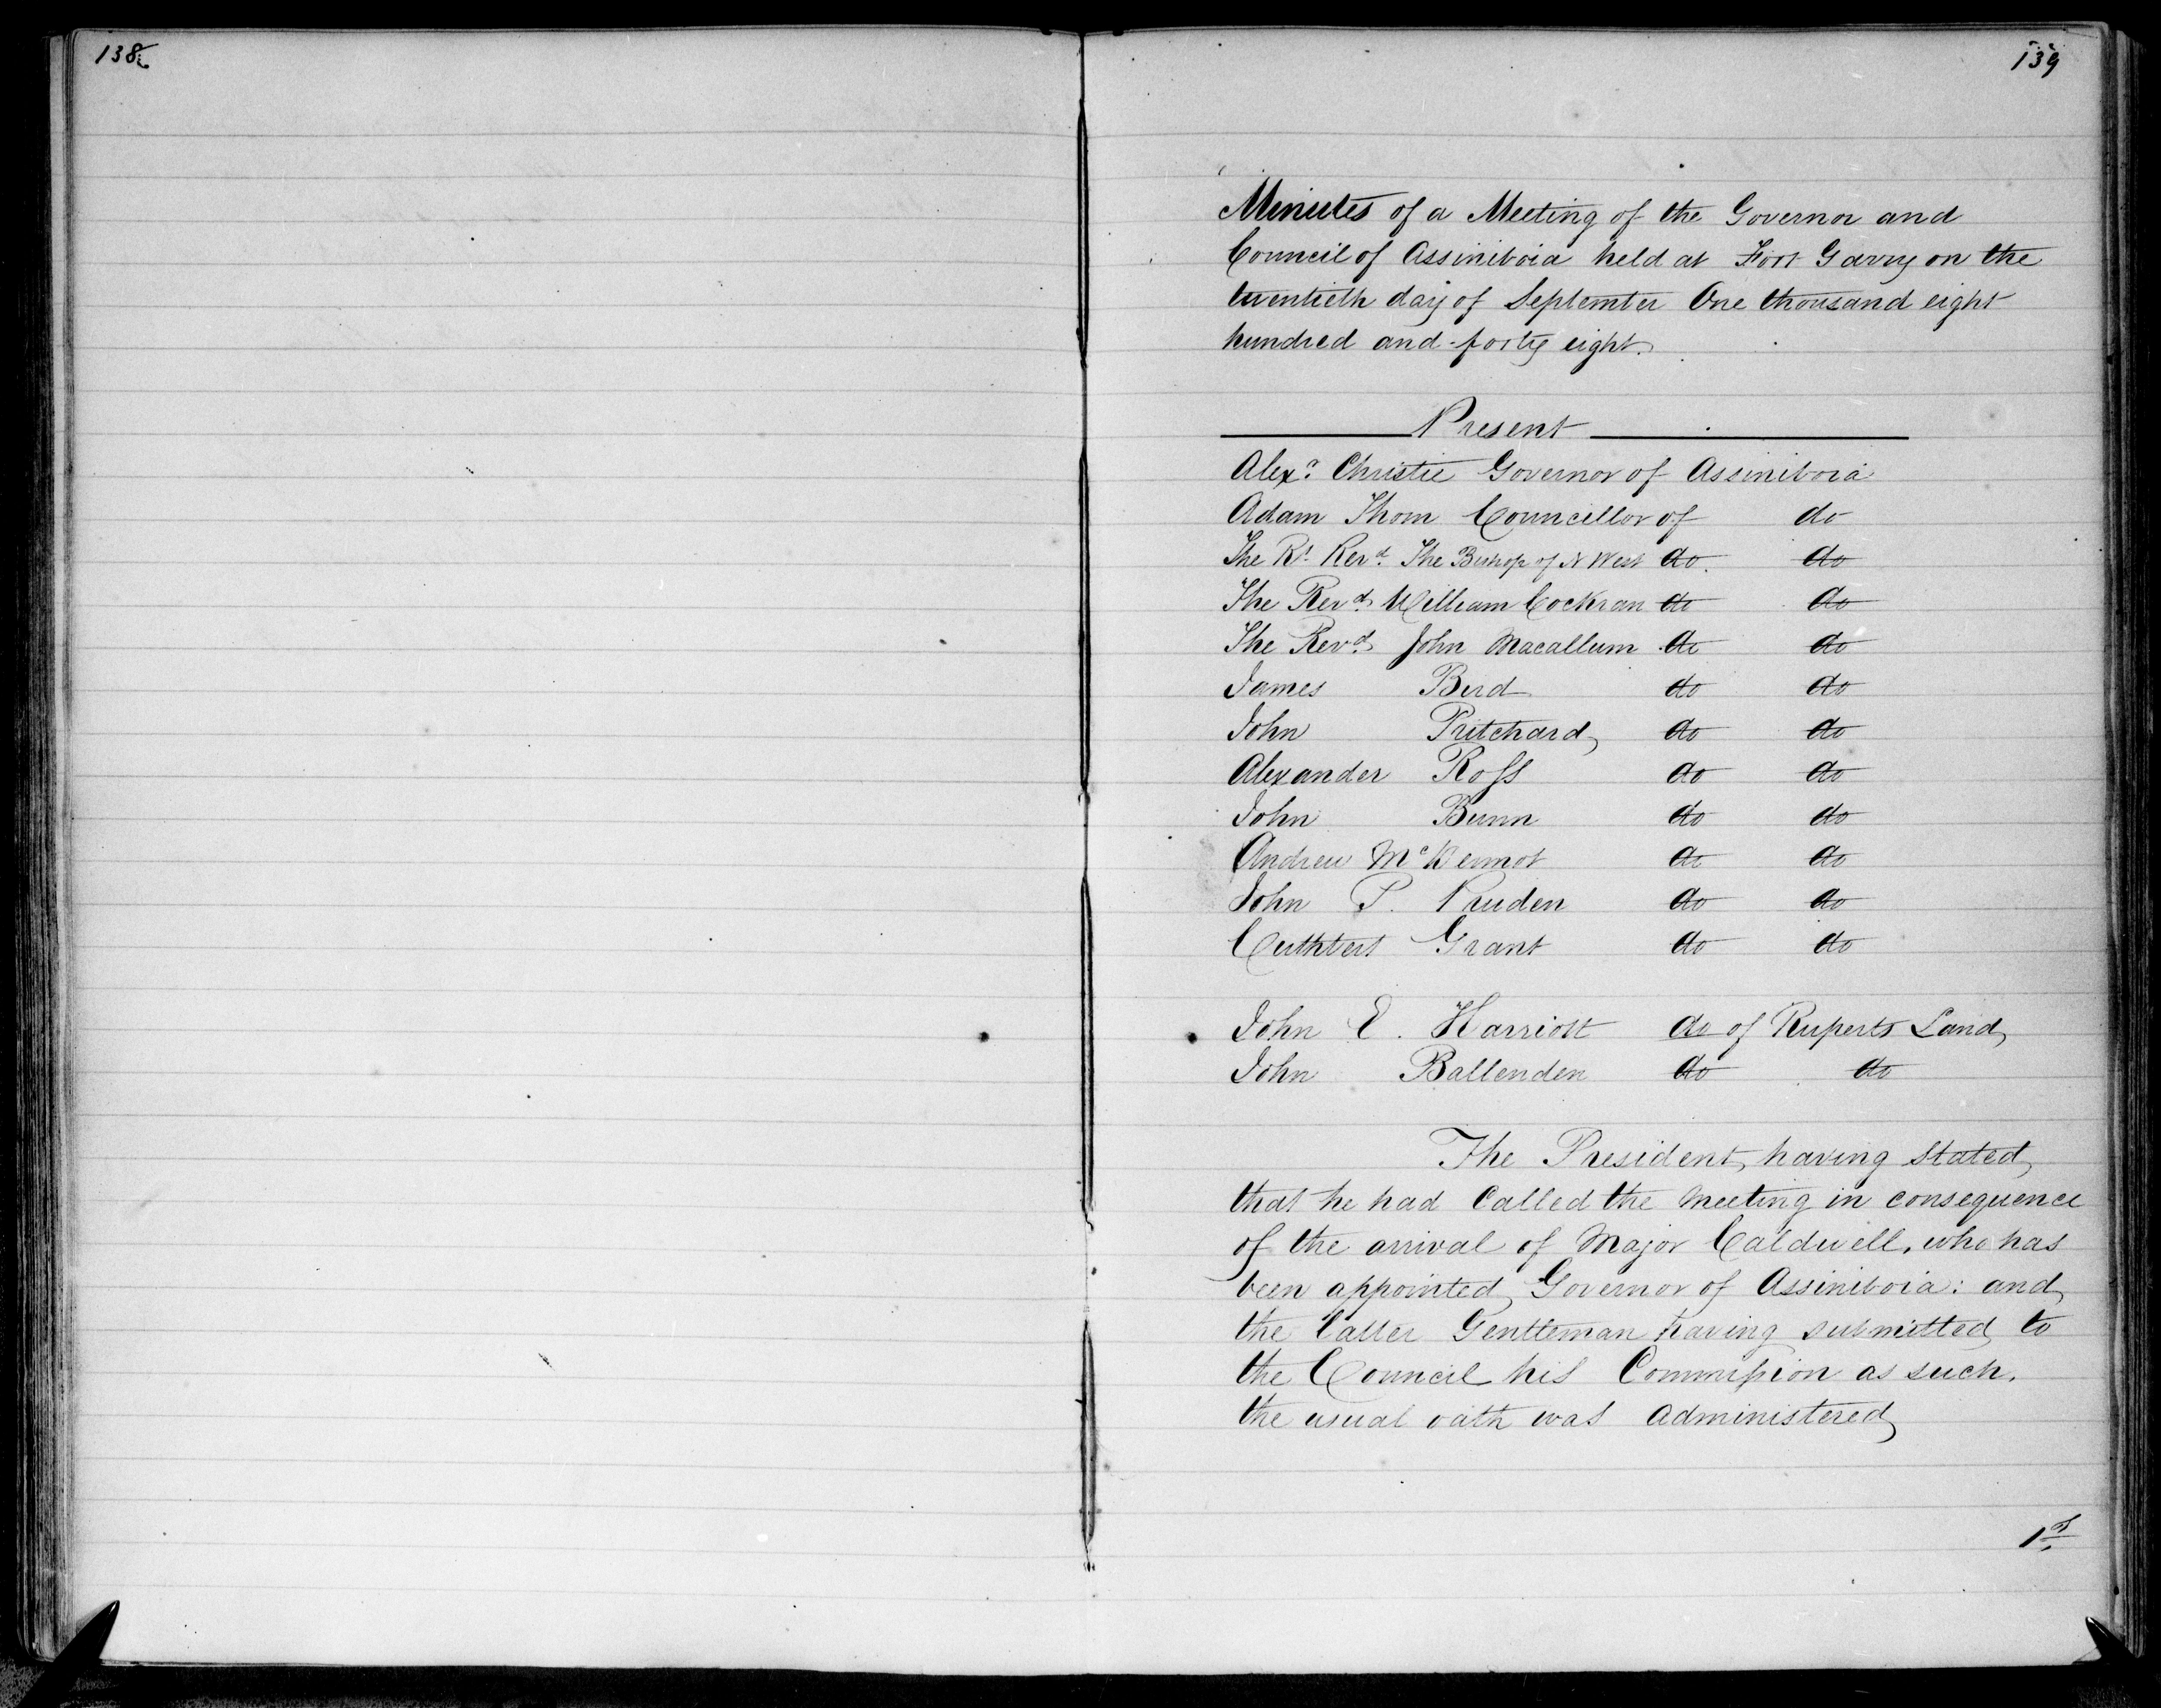 138
139
Minutes of a Meeting of the Governor and
Council of Assiniboia held at Fort Garry on the
twentieth day of September One thousand eight
hundred and forty eight.
Present
Alexr. Christie Governor of Assiniboia
Adam Thom Councillor of do
The Rt. Revd. The Bishop of N West do. do
The Revd. William Cockran do do
The Revd. John Macallum do do
James Bird do do
John Pritchard do do
Alexander Ross do do
John Bunn do do
Andrew McKermot do do
John P. Pruden do do
Cuthbert Grant do do
John E. Harriott do of Ruperts Land
John Ballenden do do
The President, having stated,
that he had Called the Meeting in consequence
of the arrival of Major Caldwell, who has
been appointed, Governor of Assiniboia: and,
the latter Gentleman having submitted to
the Council his Commission as such,
the usual oath was administered,
1st.